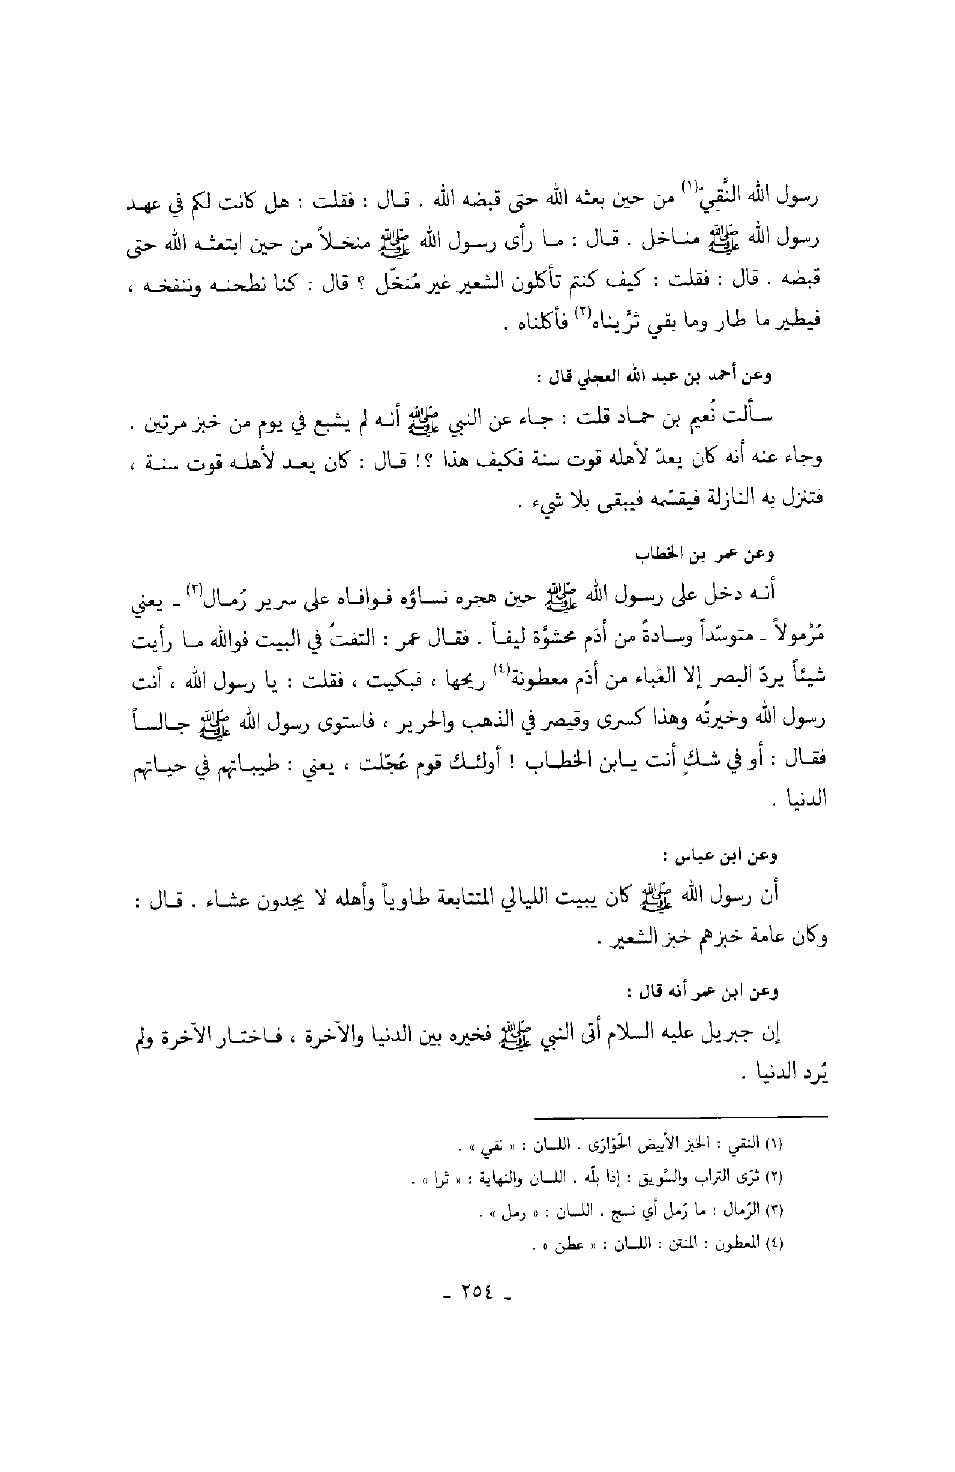 رسول الله النَّقِيّ(١) من حين بعثه الله حتى قبضه الله . قال : فقلت : هل كانت لكم في عهد
رسول الله ﷺ مناخل . قال : ما رأى رسول الله ﷺ منخلاً من حين ابتعثه الله حتى
قبضه . قال : فقلت : كيف كنتم تأكلون الشعير غير مُنخّل ؟ قال : كنا نطحنه وننفخه ،
فيطير ما طار وما بقي ثرَّيناه(٢) فأكلناه .
وعن أحمد بن عبد الله العجلي قال :
سألت نُعيم بن حماد قلت : جاء عن النبي ﷺ أنه لم يشبع في يوم من خبز مرتين .
وجاء عنه أنه كان يعدّ لأهله قوت سنة فكيف هذا ؟! قال : كان يعد لأهله قوت سنة ،
فتنزل به النازلة فيقسّمه فيبقى بلا شيء .
وعن عمر بن الخطاب
أنه دخل على رسول الله ﷺ حين هجره نساؤه فوافاه على سرير رُمال(٣) ـ يعني
مُرْمولاً ـ متوسّداً وسادةً من أدَم محشوَّة ليفاً . فقال عمر : التفتُ في البيت فوالله ما رأيت
شيئاً يردّ البصر إلا العَباء من أدَم معطونة(٤) ريحها ، فبكيت ، فقلت : يا رسول الله ، أنت
رسول الله وخيرتُه وهذا كسرى وقيصر في الذهب والحرير ، فاستوى رسول الله ﷺ جالساً
فقال : أو في شكٍ أنت يابن الخطاب ! أولئك قوم عُجّلت ، يعني : طيباتهم في حياتهم
الدنيا .
وعن ابن عباس :
أن رسول الله ﷺ كان يبيت الليالي المتتابعة طاوياً وأهله لا يجدون عشاء . قال :
وكان عامة خبزهم خبز الشعير .
وعن ابن عمر أنه قال :
إن جبريل عليه السلام أتى النبي ﷺ فخيره بين الدنيا والآخرة ، فاختار الآخرة ولم
يُرد الدنيا .
(١) النقي : الخبز الأبيض الحُوّارَى . اللسان : « نقي » .
(٢) ثرّى التراب والسَّويق : إذا بلّه . اللسان والنهاية : « ثرا » .
(٣) الرّمال : ما رُمل أي نسج . اللسان : « رمل » .
(٤) المعطون : المنتن : اللسان : « عطن » .
ـ ٢٥٤ ـ